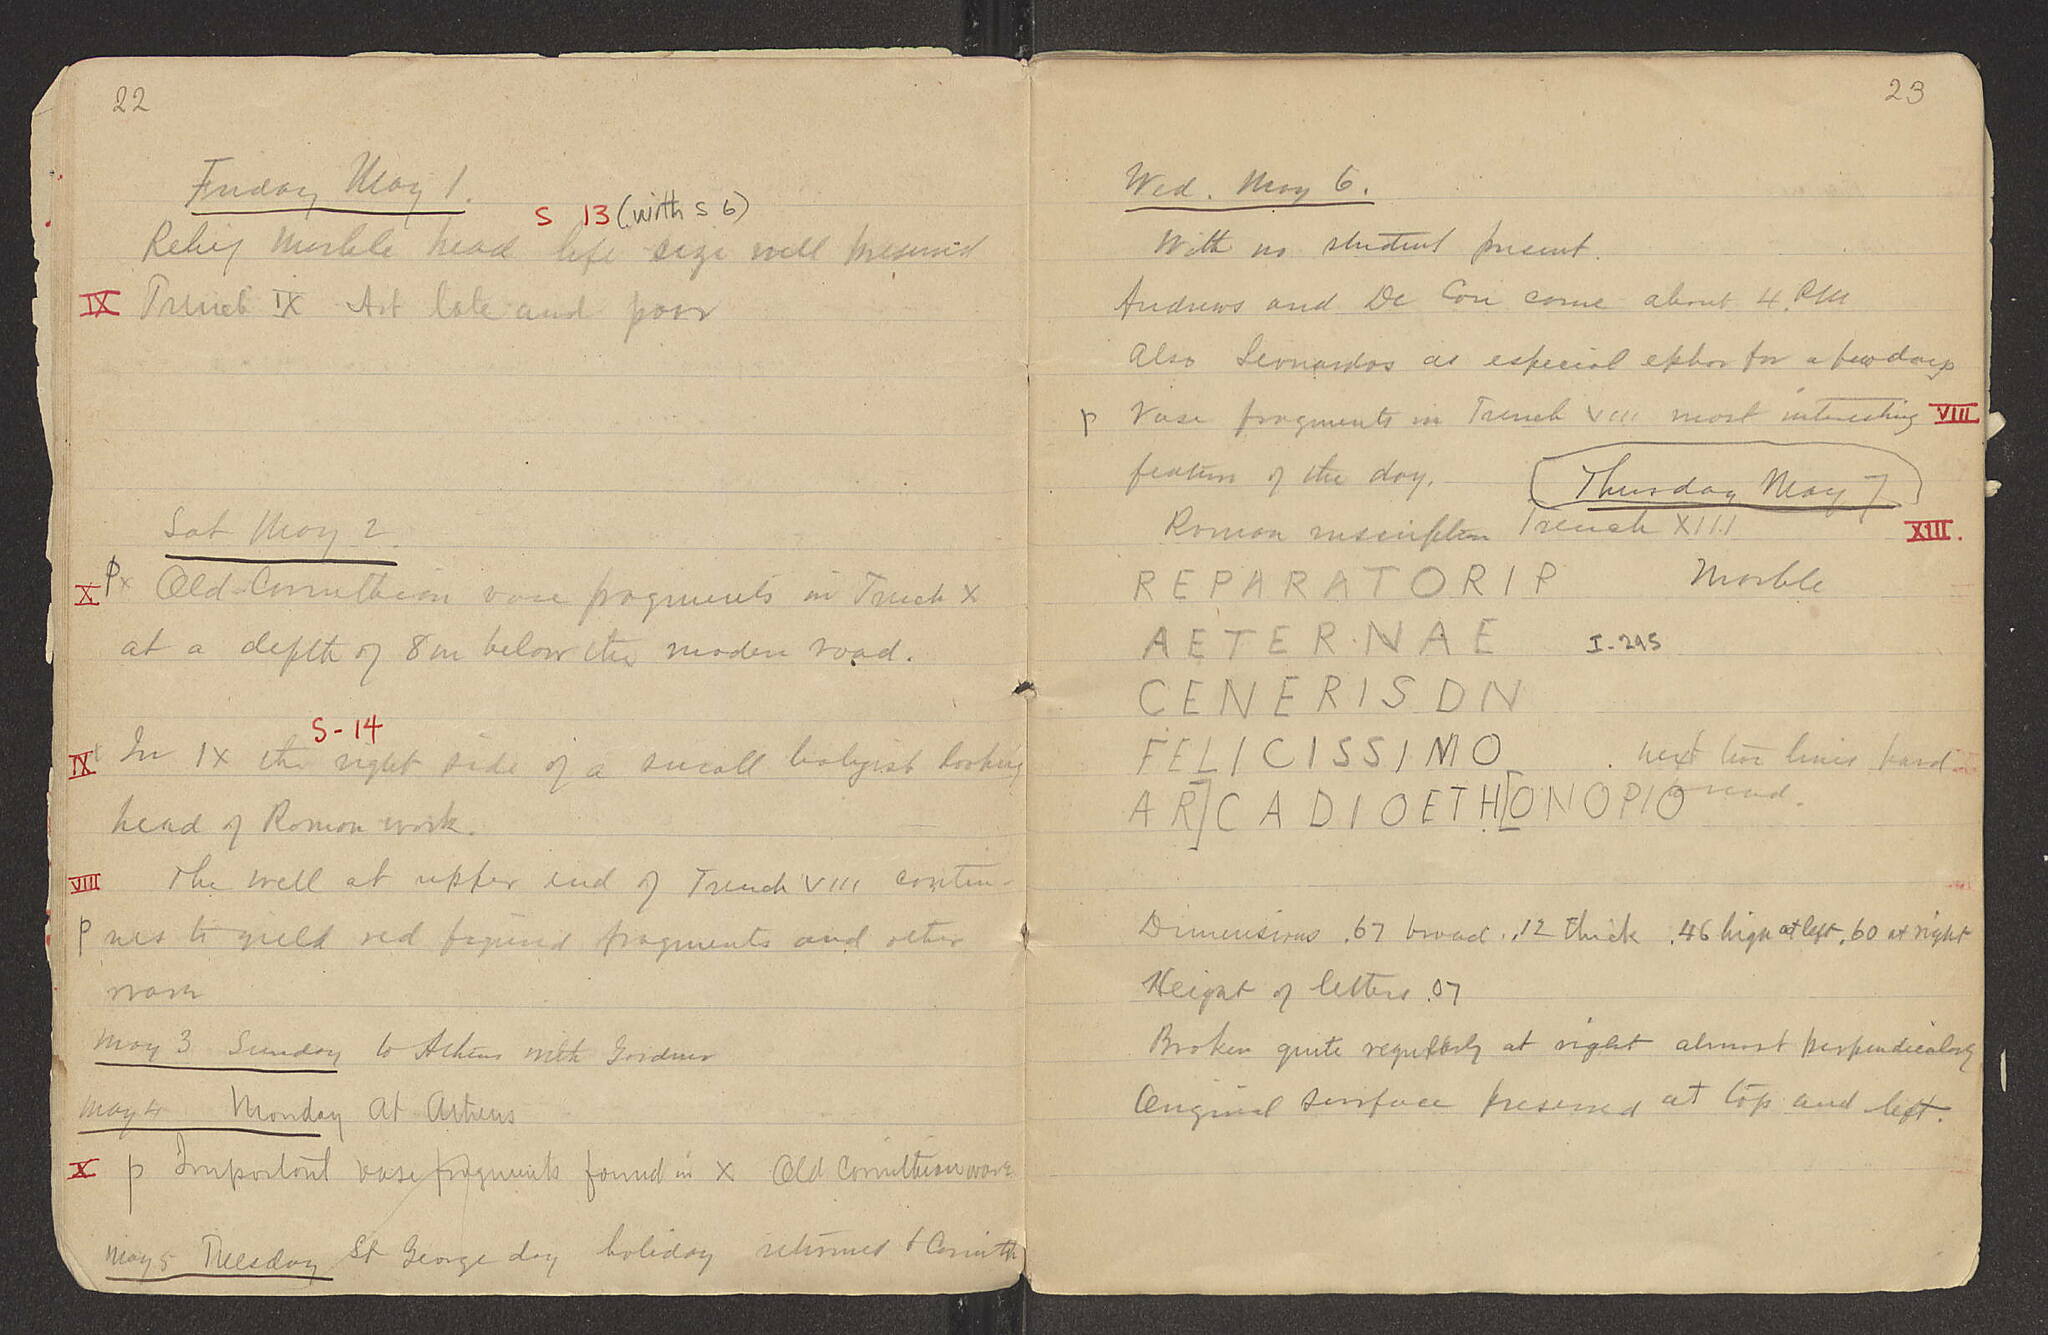 22
Friday May 1.
S 13 (with S 6)
Relief Marble head life size well preserved
IX Trench IX Art late and poor
Sat May 2
X Px Old Corinthian vase fragments in Trench X
at a depth of 8 m below the modern road.
S-14
IX In IX the right side of a small looking
head of Roman work.
VIII The well at upper end of Trench VIII contin-
P ues to yield red figured fragments and other
ware
May 3 Sunday to Athens with Gardner
May 4 Monday at Athens
X p Important vase fragments found in X Old Corinthian ware
May 5 Tuesday St George day holiday returned to Corinth
23
Wed. May 6.
With no student present.
Andrews and De Cou come about 4. PM
Also Leonardos as especial ephor for a few days
P Vase fragments in Trench VIII most interesting VIII
feature of the day.
Thursday May 7
Roman inscription Trench XIII XIII.
REPARATORIP Marble
AETERNAE I-295
CENERISDN
FELICISSIMO . next two lines hard
to read.
AR]CADIOETH[ONOPIO
Dimensions .67 broad .12 thick .46 high at left .60 at right
Height of letters .07
Broken quite regularly at right almost perpendicularly
Original surface preserved at top and left.